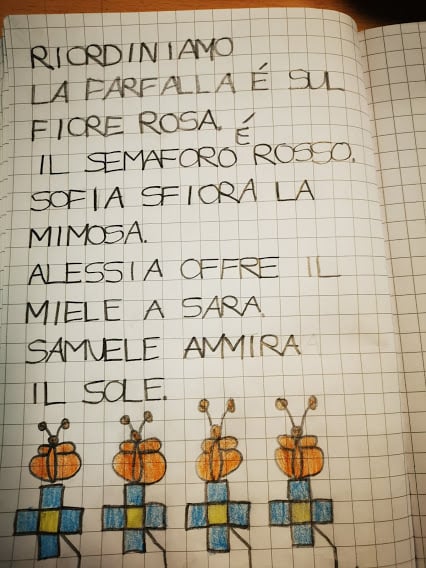 RIORDINIAMO
LA FARFALLA É SUL
FIORE ROSA.
IL SEMAFORO É ROSSO.
SOFIA SFIORA LA
MIMOSA.
ALESSIA OFFRE IL
MIELE A SARA.
SAMUELE AMMIRA
IL SOLE.